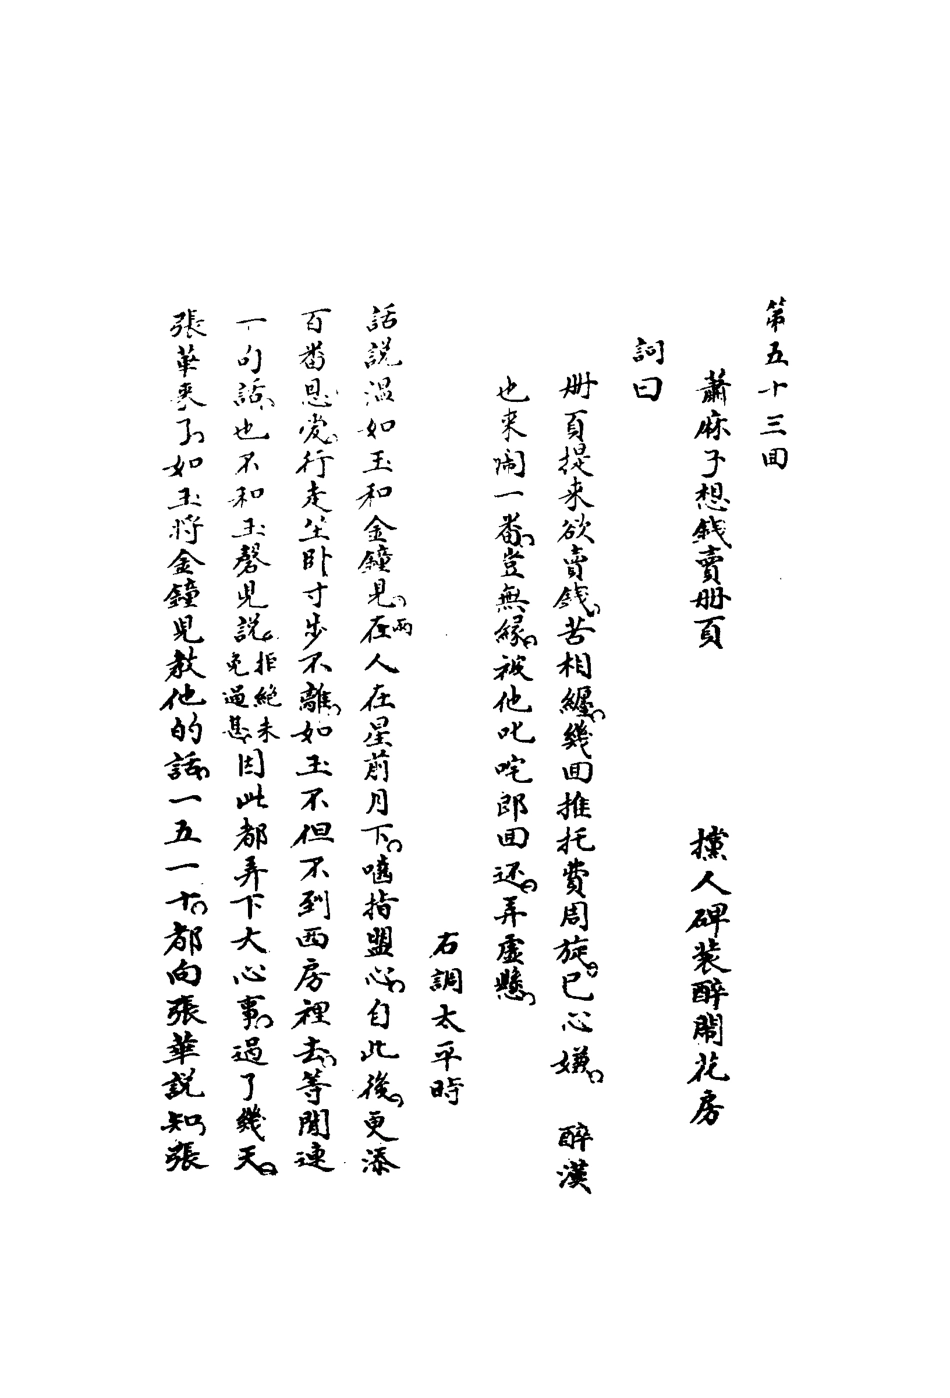 第五十三回
蕭麻子想錢賣册頁　攩人碑裝醉鬧花房
詞曰
册頁提来欲賣錢苦相纏幾回推托費周旋已心嫌　醉漢
也来鬧一番豈無緣被他叱咤郎回还弄虛懸
右調太平時
話說溫如玉和金鐘兒在兩人在星前月下嚙指盟心自此後更添
百番恩愛行走坐卧寸步不離如玉不但不到西房裡去等閒連
一句話也不和玉磬兒說拒絕未免過甚因此都弄下大心事過了幾天
張華来了如玉將金鐘兒教他的話一五一十都向張華說知張